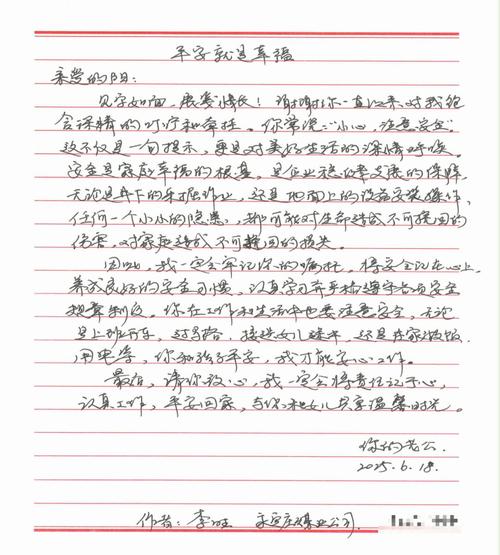 平安就是幸福
亲爱的阳：
见字如面，展笺情长！谢谢你一直以来对我饱
含深情的叮咛和牵挂。你常说："小心，注意安全"，
这不仅是一句提示，更是对美好生活的深情呼唤。
安全是家庭幸福的根基，是企业稳健发展的保障，
无论是井下的采掘作业，还是地面上的设备安装操作，
任何一个小小的隐患，都可能对生命造成不可挽回的
伤害，对家庭造成不可挽回的损失。
因此，我一定会牢记你的嘱托，将安全记在心上，
养成良好的安全习惯，认真学习并严格遵守各项安全
规章制度。你在工作和生活中也要注意安全，无论
是上班开车，过马路，接送女儿，还是在家做饭，
用电等，你和孩子平安，我才能安心工作。
最后，请你放心，我一定会将责任记于心，
认真工作，平安回家，与你和女儿共享温馨时光。
你的老公
2025.6.18.
作者：李旺 永定庄煤业公司